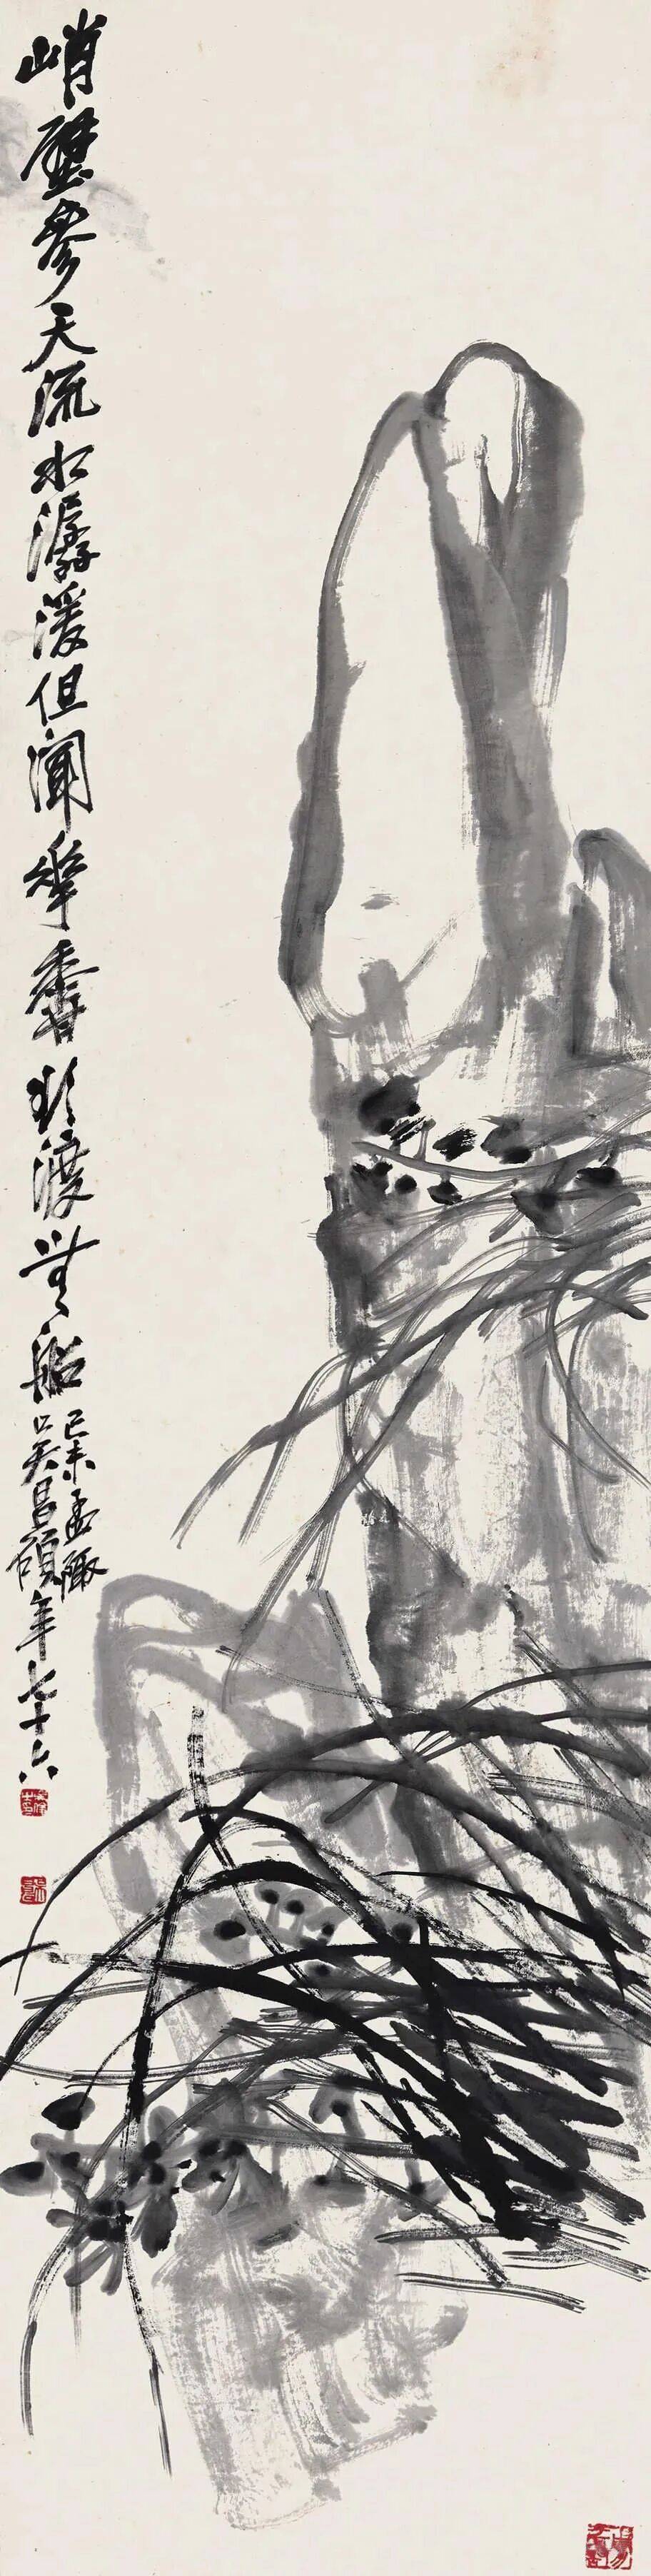 峭壁參天流水潺湲但聞華香欲渡無船
己未孟陬
吳昌碩年七十六